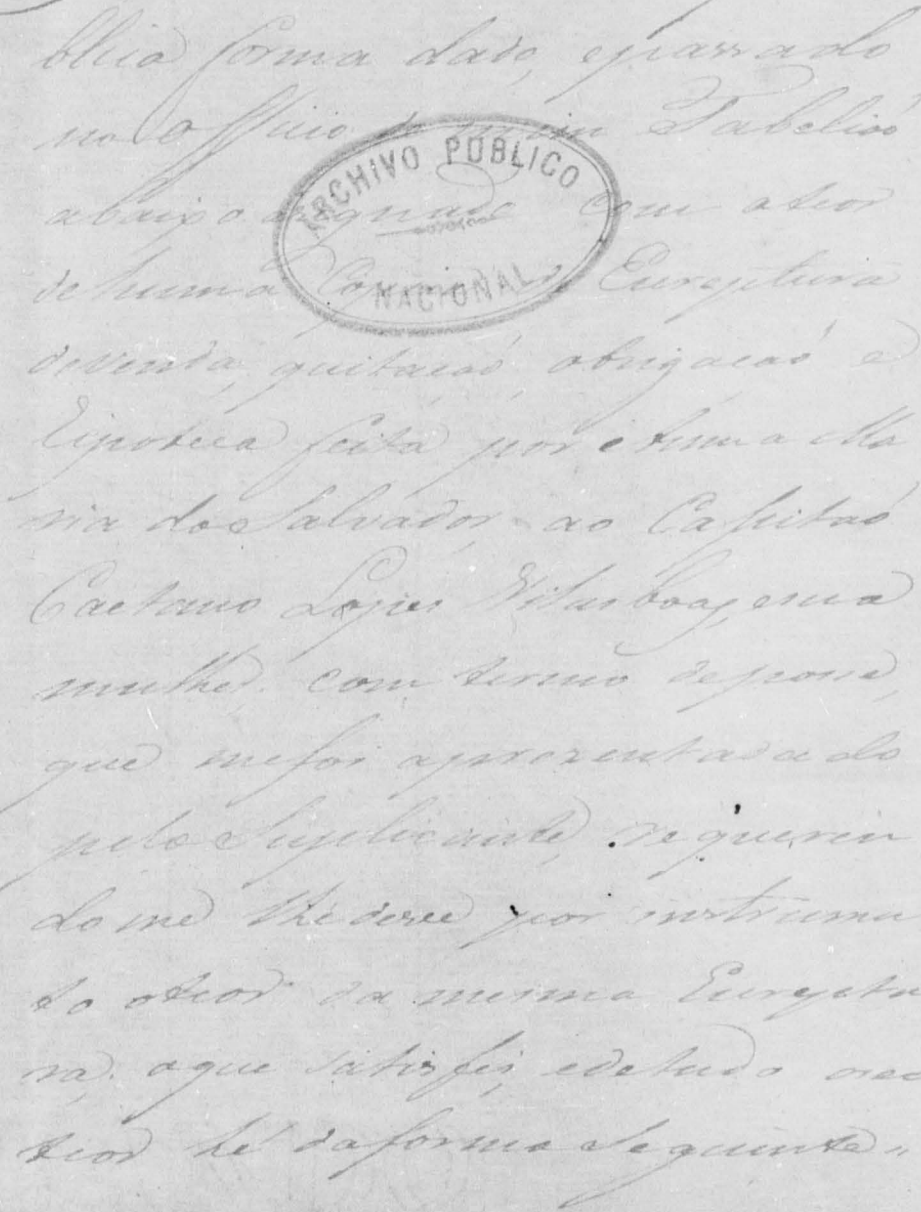 blica forma dado, epassado
no Officio de mim Tabeliaõ
abaixo asignado com oteor
ARCHIVO PÚBLICO
NACIONAL
de huma Copia de Escreptura
devenda, quitacaõ, obrigacaõ e
Eipoteca feita por Anna Ma
ria do Salvador, ao Capitaõ
Caetano Lopes Vilasboas, esua
mulhe, com termo deposse,
que mefoi aprezentada do
pelo Suplicante, requerin
dome lhe desse por instrumen
to oteor da mesma Escreptu
ra, oque satisfis, edetudo oseo
teor hé daforma Seguinte"